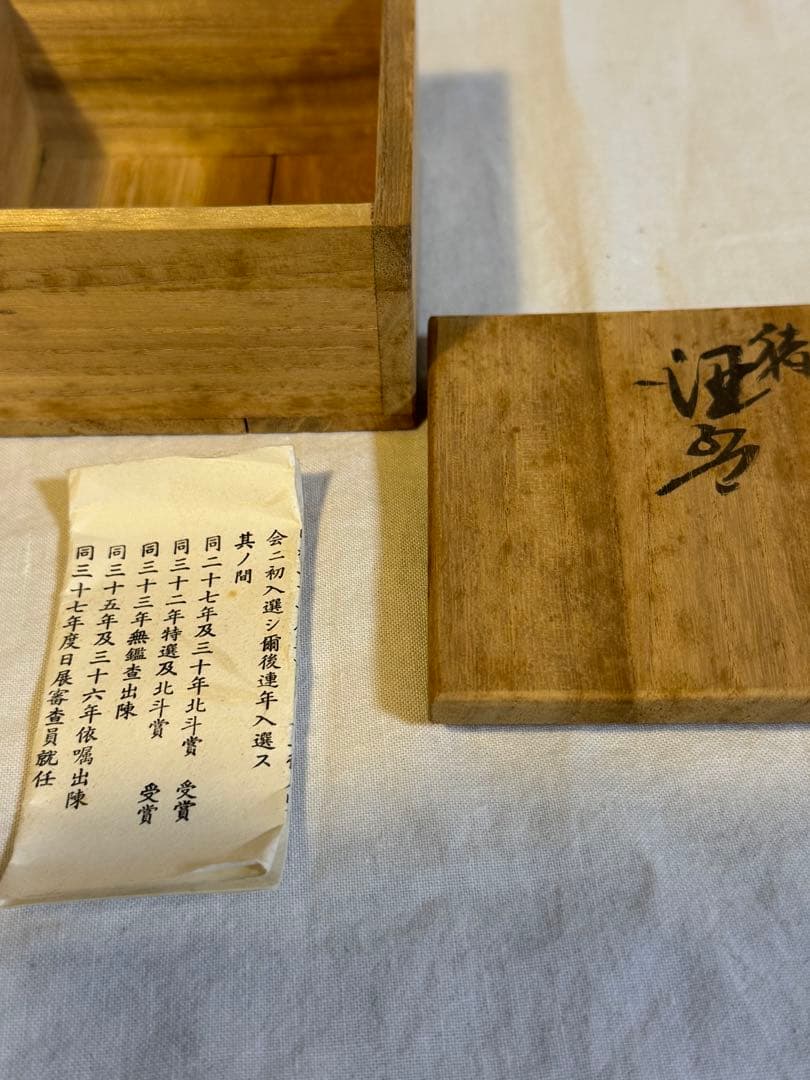 猪
酒
会ニ初入選シ爾後連年入選ス
其ノ間
同二十七年及三十年北斗賞 受賞
同三十二年特選及北斗賞 受賞
同三十三年無鑑査出陳
同三十五年及三十六年依嘱出陳
同三十七年度日展審査員就任